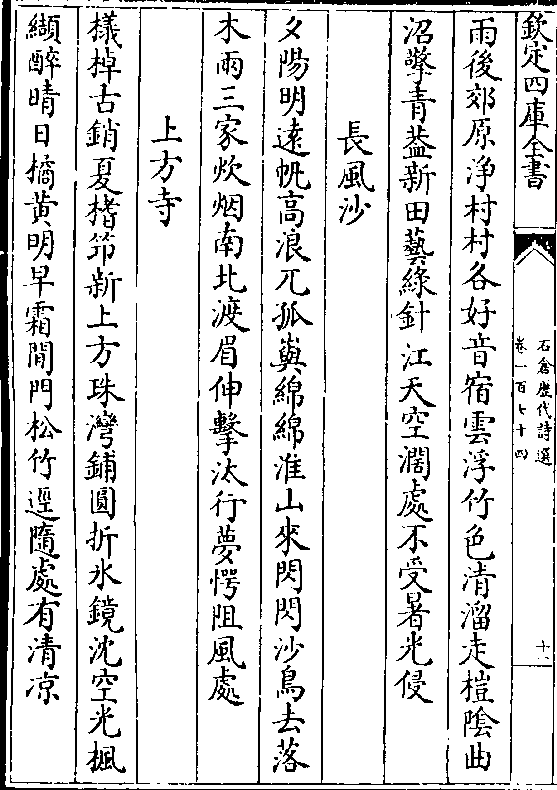 欽定四庫全書
石倉歴代詩選
卷一百七十四
十一
雨後郊原淨村村各好音宿雲浮竹色清溜走榿隂曲
沼擎青葢新田藝綠針江天空濶處不受暑光侵
長風沙
夕陽明遠帆高浪兀孤嶼綿綿淮山來閃閃沙鳥去落
木兩三家炊烟南北渡眉伸擊汰行夢愕阻風處
上方寺
檥棹古銷夏楮笻新上方珠灣鋪圓折氷鏡沈空光楓
纈醉晴日橘黄明早霜閒門松竹逕隨處有清凉